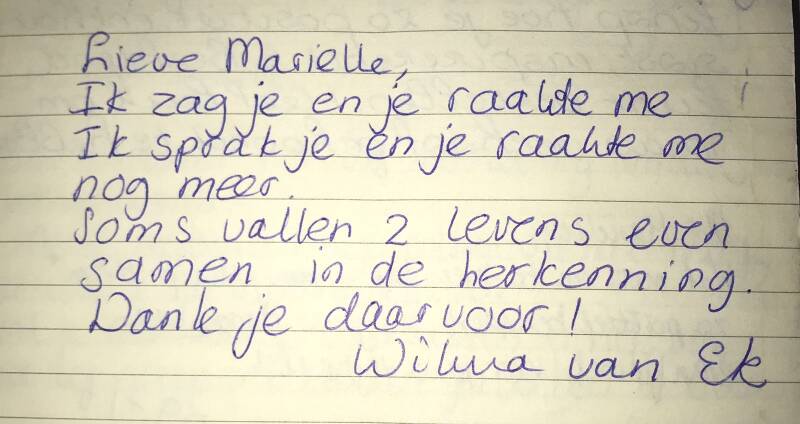 Lieve Marielle,
Ik zag je en je raakte me
Ik sprak je en je raakte me
nog meer.
Soms vallen 2 levens even
samen in de herkenning.
Dank je daarvoor!
Wilma van Ek